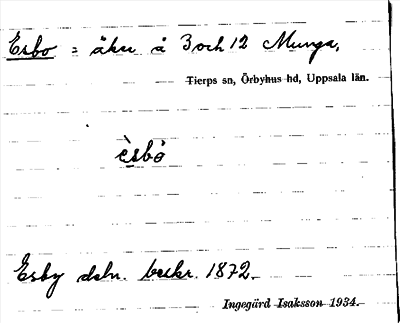 Esbo = åker å 3 och 12 Munga,
Tierps sn, Örbyhus hd, Uppsala län.
èsbò
Esby dsbr. beskr. 1872.
Ingegärd Isaksson 1934.